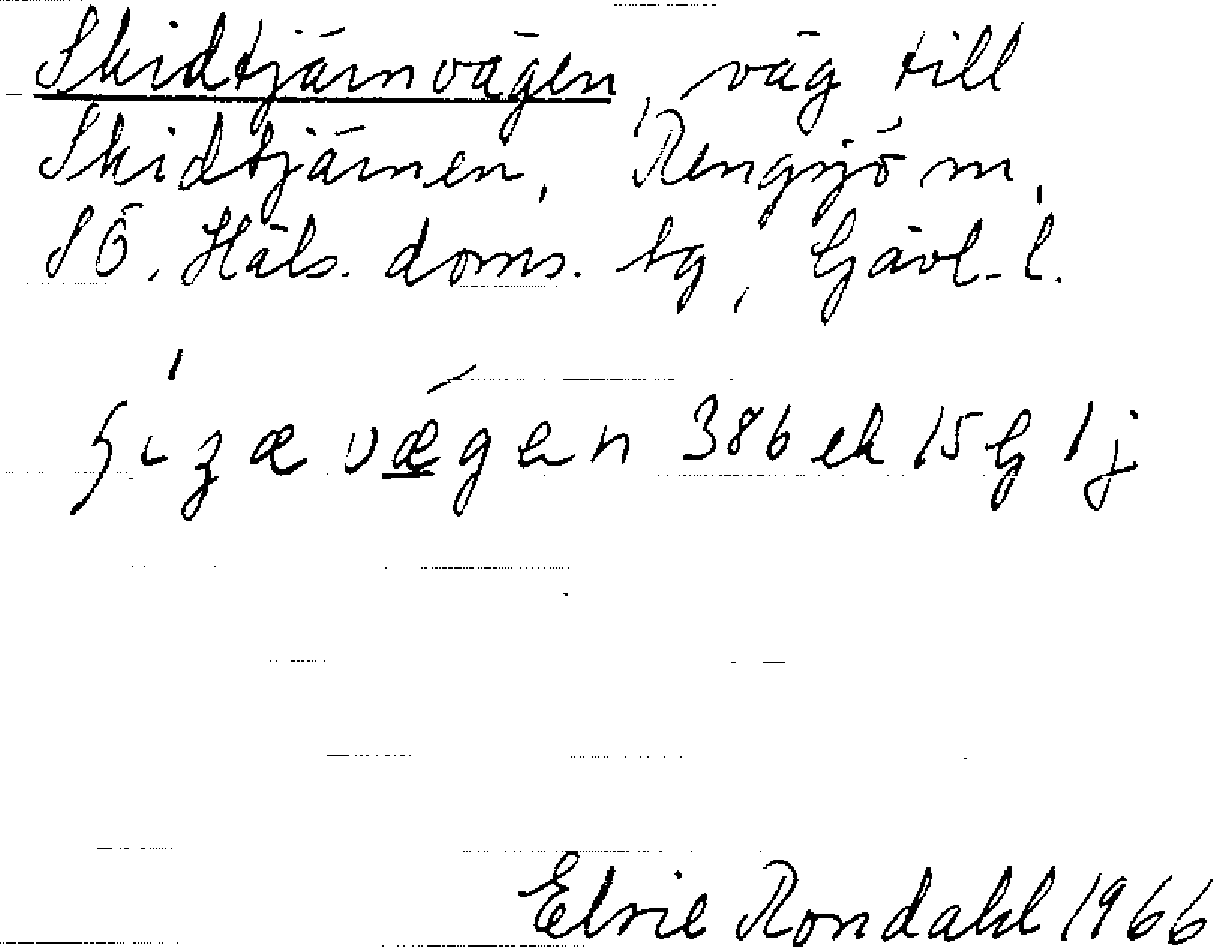 Skidtjärnvägen, väg till
Skidtjärnen, Rengsjö sn,
SÖ. Häls. doms. tg, Gävl. l.
386 ek 15 G 1 j
Elsie Rondahl 1966